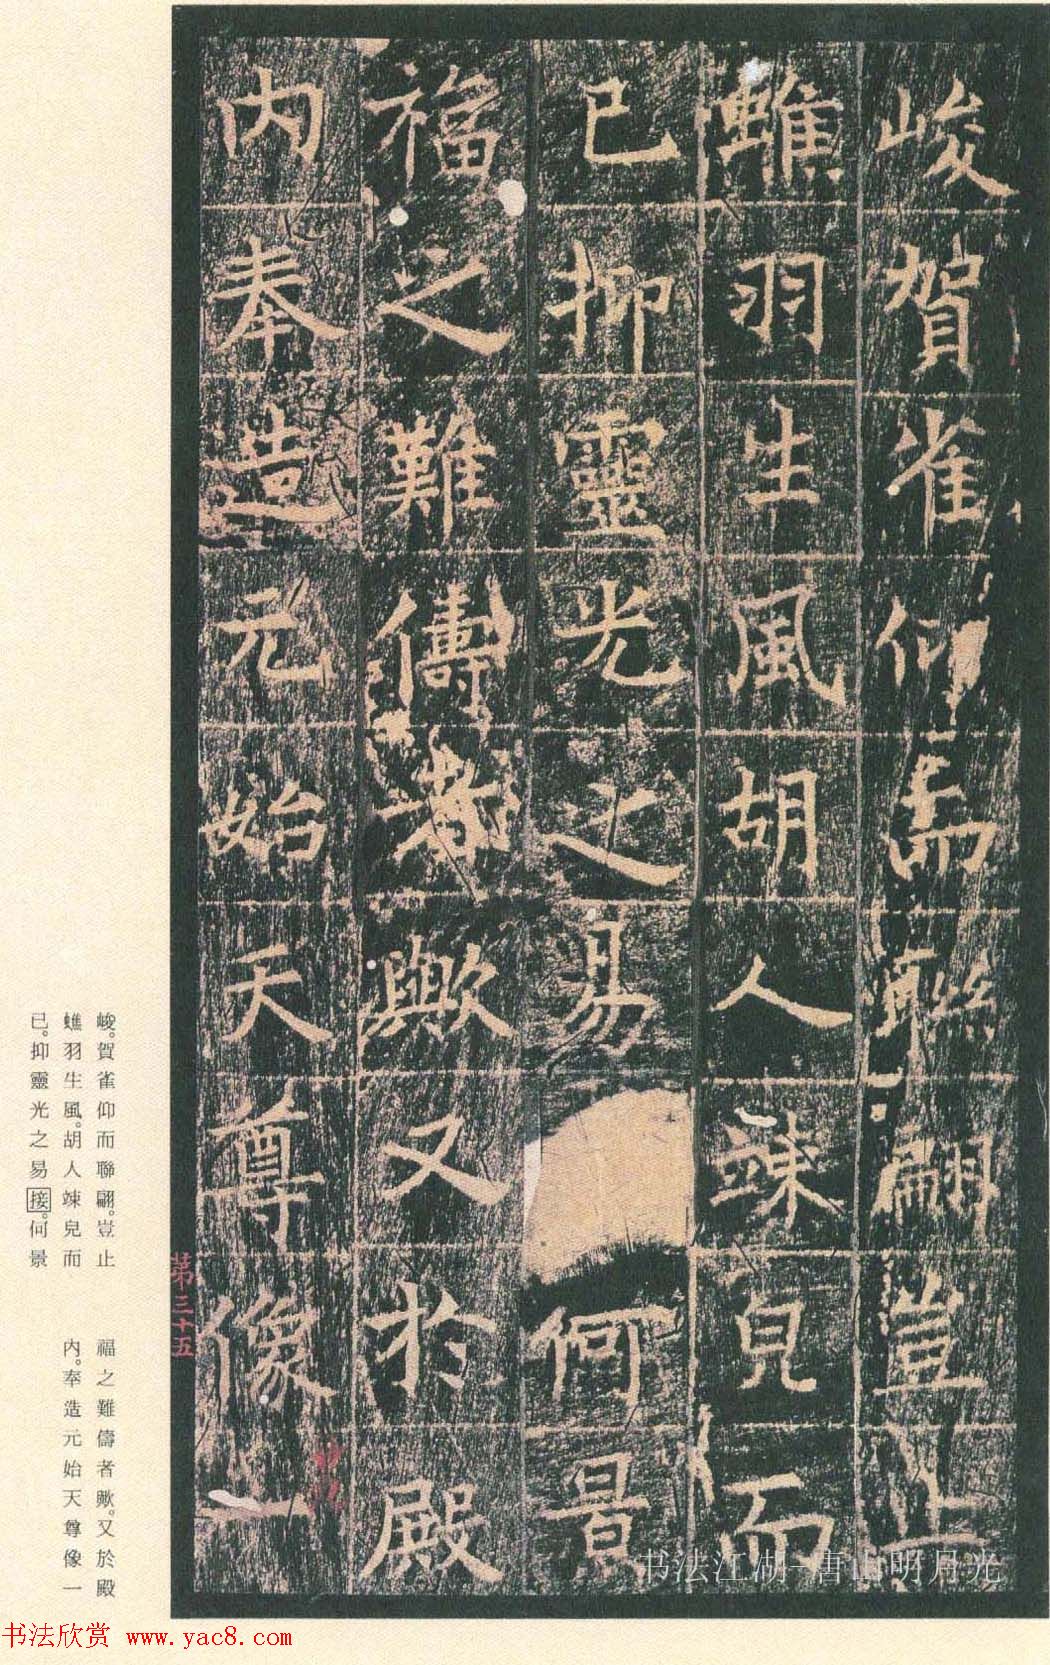 峻賀雀仰而聯翩豈止
蟭羽生風胡人竦皃而
已抑靈光之易何景
福之難儔者歟又於殿
内奉造元始天尊像一
第三十五
峻。賀雀仰而聯翩。豈止
蟭羽生風。胡人竦皃而
已。抑靈光之易接。何景
福之難儔者歟。又於殿
内。奉造元始天尊像一
书法江湖-唐山明月光
书法欣赏 www.yac8.com